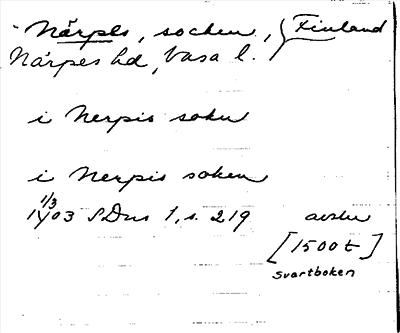 Närpes, socken, Finland
Närpes hd, Vasa l.
i Nerpis sokn
i Nerpis soken
1/3
1403 SDns 1, s. 219 avskr
[1500 t]
svartboken